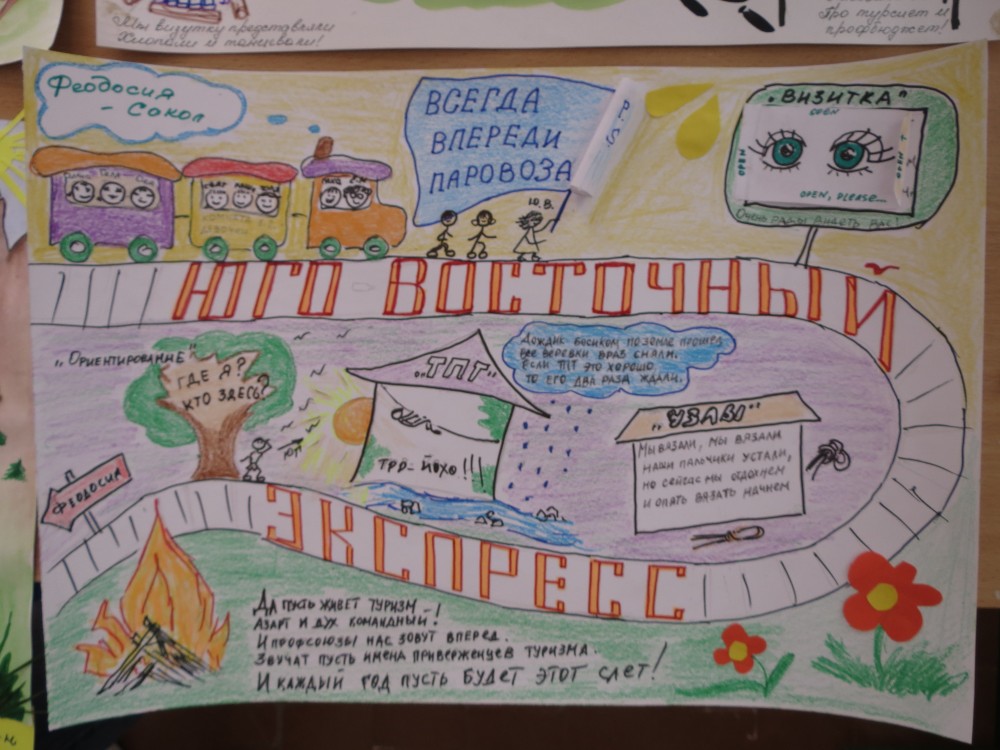 Мы визитку представляли
Хлопали и танцевали!
Про турслет и
профбюджет!
Феодосия
- Сокол
ВСЕГДА
ВПЕРЕДИ
ПАРОВОЗА
P.S.
Ю.В.
"ВИЗИТКА"
OPEN
OPEN
OPEN
OPEN, PLEASE...
Очень рады видеть вас!
ЮГО ВОСТОЧНЫЙ
"Ориентирование"
ГДЕ Я?
КТО ЗДЕСЬ?
"ТПГ"
ДОЖДИК БОСИКОМ ПО ЗЕМЛЕ ПРОШЕЛ
ВСЕ ВЕРЕВКИ ВРАЗ СНЯЛИ.
ЕСЛИ ТПГ ЭТО ХОРОШО
ТО ЕГО ДВА РАЗА ЖДАЛИ.
"УЗЛЫ"
МЫ ВЯЗАЛИ, МЫ ВЯЗАЛИ
НАШИ ПАЛЬЧИКИ УСТАЛИ,
НО СЕЙЧАС МЫ ОТДОХНЕМ
И ОПЯТЬ ВЯЗАТЬ НАЧНЕМ
ФЕОДОСИЯ
ЭКСПРЕСС
ДА ПУСТЬ ЖИВЕТ ТУРИЗМ –!
АЗАРТ И ДУХ КОМАНДНЫЙ –!
И ПРОФСОЮЗЫ НАС ЗОВУТ ВПЕРЕД.
ЗВУЧАТ ПУСТЬ ИМЕНА ПРИВЕРЖЕНЦЕВ ТУРИЗМА.
И КАЖДЫЙ ГОД ПУСТЬ БУДЕТ ЭТОТ СЛЕТ!